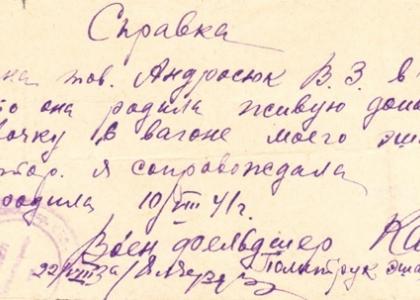 Справка
на тов. Андросюк В. З. в
то она родила живую
вочку в вагоне моего эш
тор. я сопровождала
родила 10/VIII 41 г.
Воен фельдшер
22/VIII Политрук эша